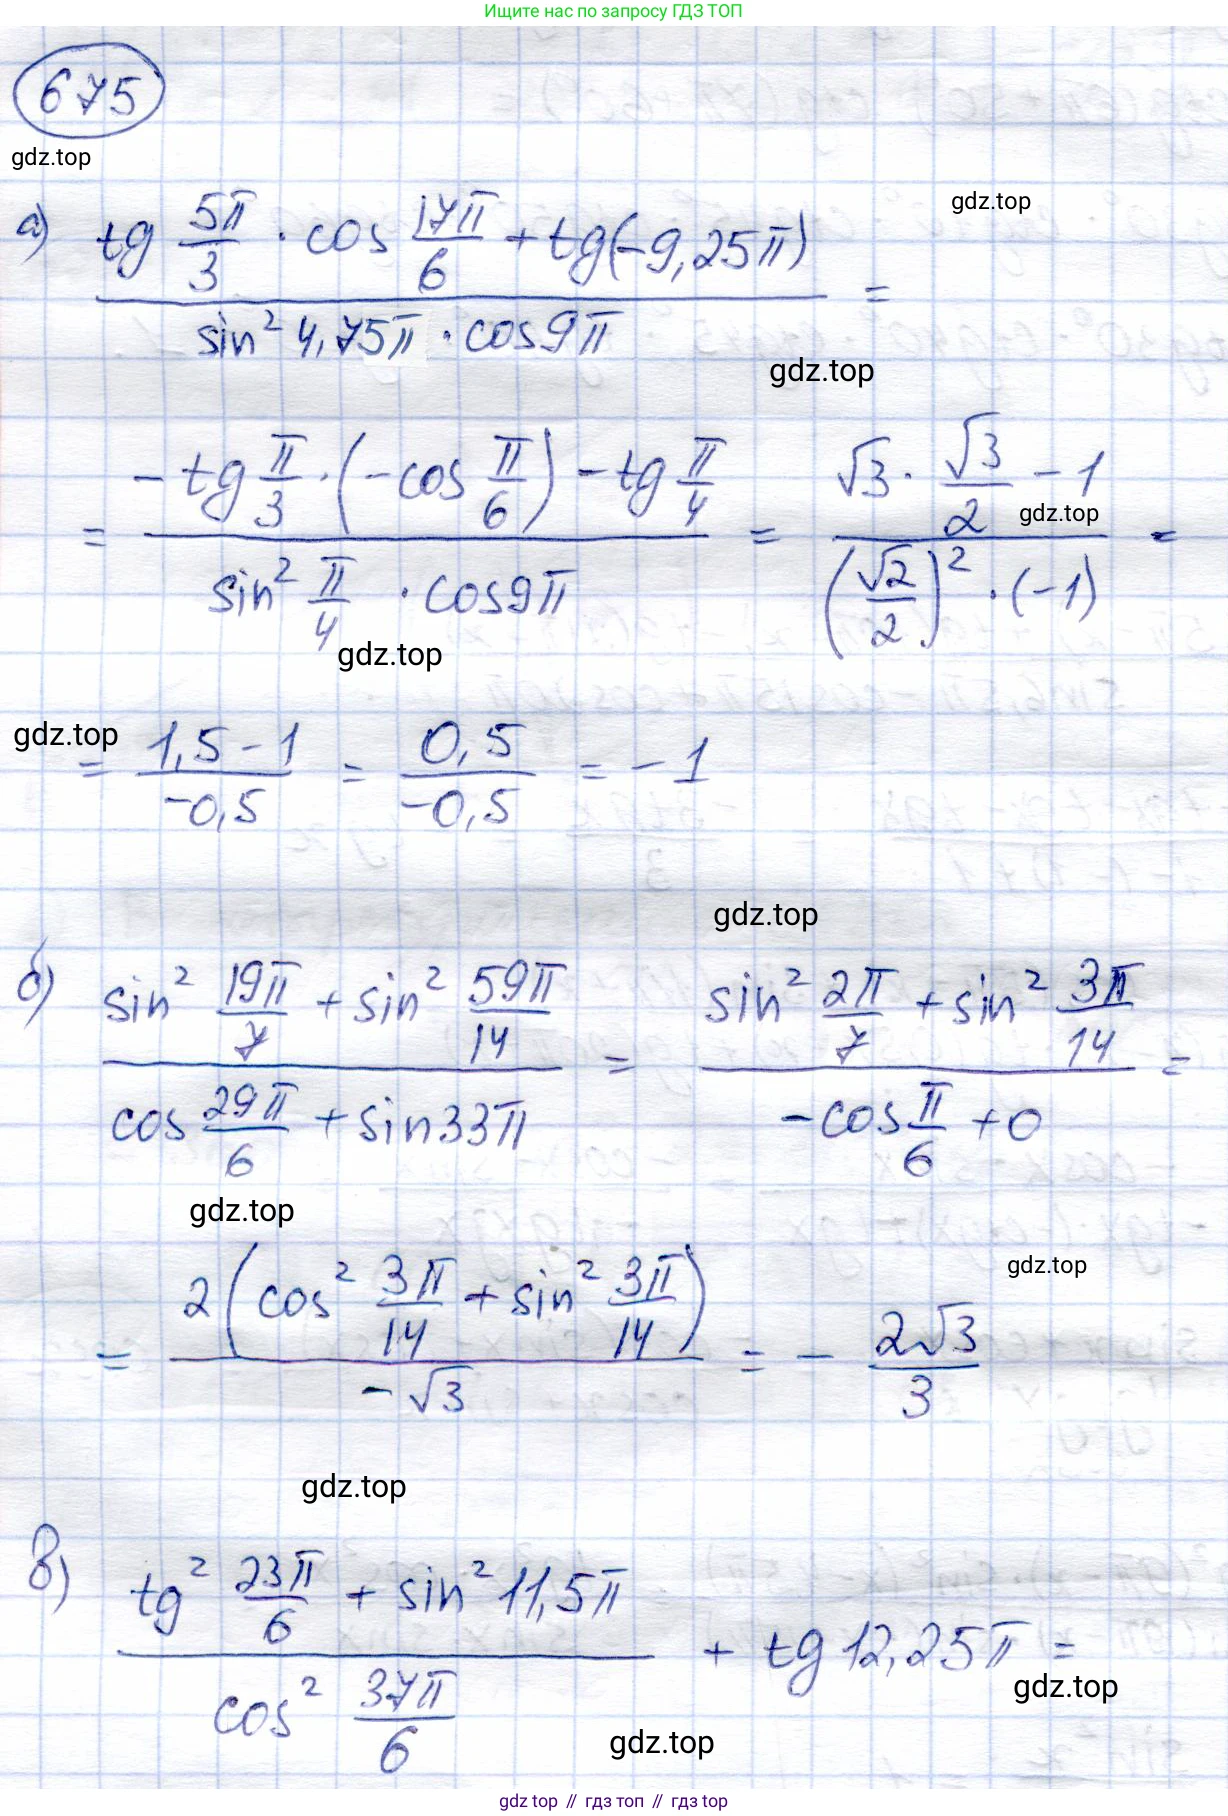 Ищите нас по запросу ГДЗ ТОП
675
gdz.top
gdz.top
а) (tg 5π/3 · cos 17π/6 + tg(-9,25π)) / (sin² 4,75π · cos 9π) =
gdz.top
= (-tg π/3 · (-cos π/6) - tg π/4) / (sin² π/4 · cos 9π) = (√3 · √3/2 - 1) / ((√2/2)² · (-1)) =
gdz.top
gdz.top
gdz.top
= (1,5 - 1) / (-0,5) = 0,5 / (-0,5) = -1
gdz.top
б) (sin² 19π/7 + sin² 59π/14) / (cos 29π/6 + sin 33π) = (sin² 2π/7 + sin² 3π/14) / (-cos π/6 + 0) =
gdz.top
gdz.top
= 2(cos² 3π/14 + sin² 3π/14) / (-√3) = - 2√3/3
gdz.top
в) (tg² 23π/6 + sin² 11,5π) / (cos² 37π/6) + tg 12,25π =
gdz.top
gdz.top
gdz top // гдз топ // гдз top